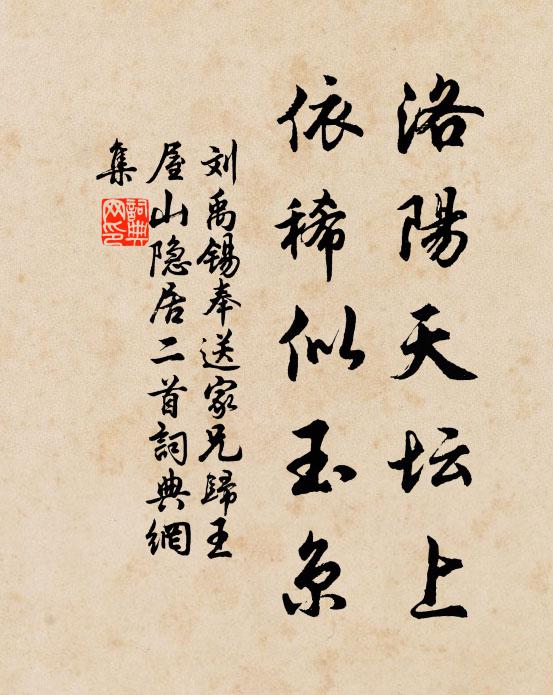 洛陽天坛上
依稀似玉京
刘禹锡奉送家兄歸王
屋山隐居二首詞典網
集
詞典
网印